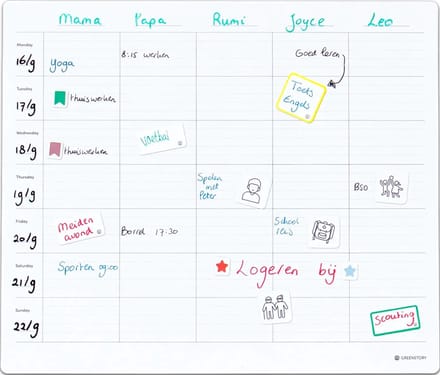 Mama Papa Rumi Joyce Leo
Monday
16/9
Yoga
8:15 werken
Goed leren
Tuesday
17/9
Thuiswerken
Toets
Engels
Wednesday
18/9
Thuiswerken
Voetbal
Thursday
19/9
Spelen
met
Peter
BSO
Friday
20/9
Meiden
avond
Borrel 17:30
School
reis
Saturday
21/9
Sporten 09:00
Logeren bij
Sunday
22/9
Scouting
GREENSTORY